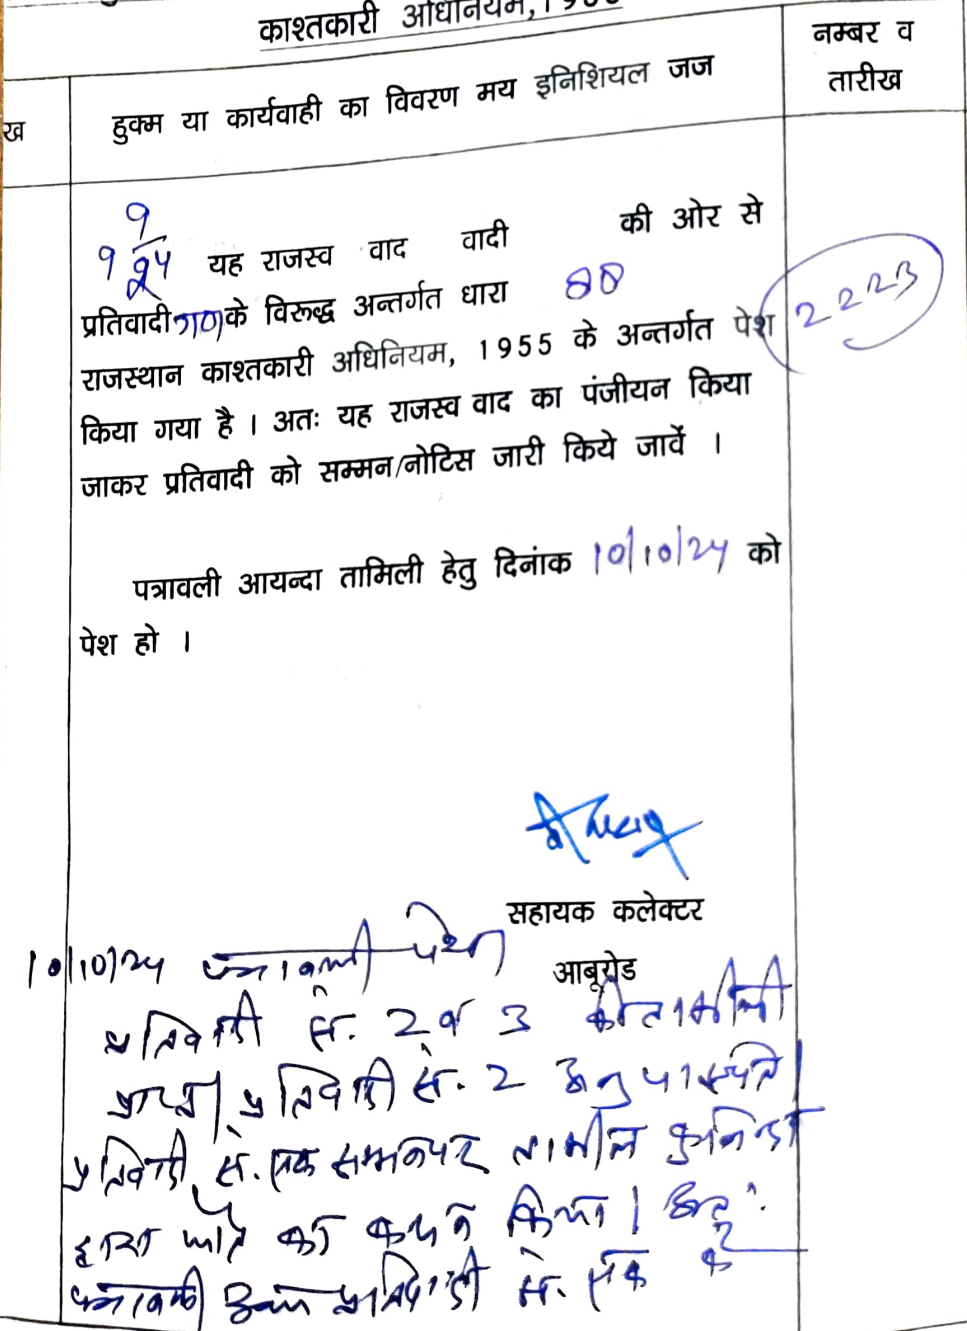 काश्तकारी अधिनियम, 1955
नम्बर व
तारीख
ख
हुक्म या कार्यवाही का विवरण मय इनिशियल जज
9
9 24 यह राजस्व वाद वादी की ओर से
प्रतिवादीगण के विरूद्ध अन्तर्गत धारा 88
2223
राजस्थान काश्तकारी अधिनियम, 1955 के अन्तर्गत पेश
किया गया है । अतः यह राजस्व वाद का पंजीयन किया
जाकर प्रतिवादी को सम्मन/नोटिस जारी किये जावें ।
पत्रावली आयन्दा तामिली हेतु दिनांक 10/10/24 को
पेश हो ।
सहायक कलेक्टर
आबूरोड
10/10/24 पत्रावली पेश
प्रतिवादी सं. 2 व 3 की तामीली
प्राप्त। प्रतिवादी सं. 2 अनुपस्थित।
प्रतिवादी सं. एक सम्मन पर तामील
द्वारा का कथन किया। अतः
पत्रावली प्रतिवादी सं. एक के